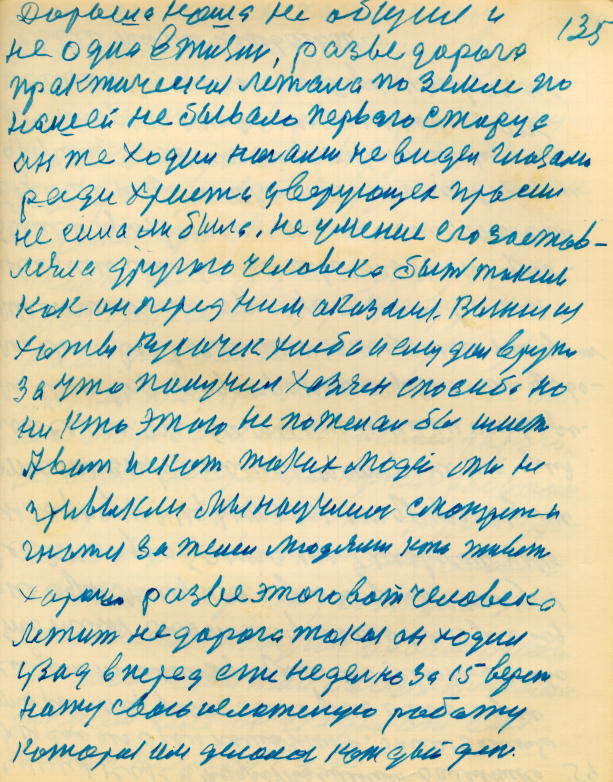 135
Дорогиа наша не обиния и
не одна в тиязи, разве дорога
практически летала по земле по
нашей не бывало первого старуа
он же ходил ногами не видел глазами
ради христа у верующех просил
не сила ли была, не умение его застов-
ляла другого человека быт таким
как он перед ним аказался. Вынися
хотвы кусачек хлеба и ему дал вруки
за что получил хозяен спосиба но
ни кто этого не пожелал бы имет
А вот искат таких людей мы не
привыкли мы научились смотреть и
гнатся за теми людями кто живот
хорошо разве этого вот человека
летит не дорога такая он ходил
узад вперед сто неделно за 15 верст
на свою неложеную работу
которая им делалас каждый ден.